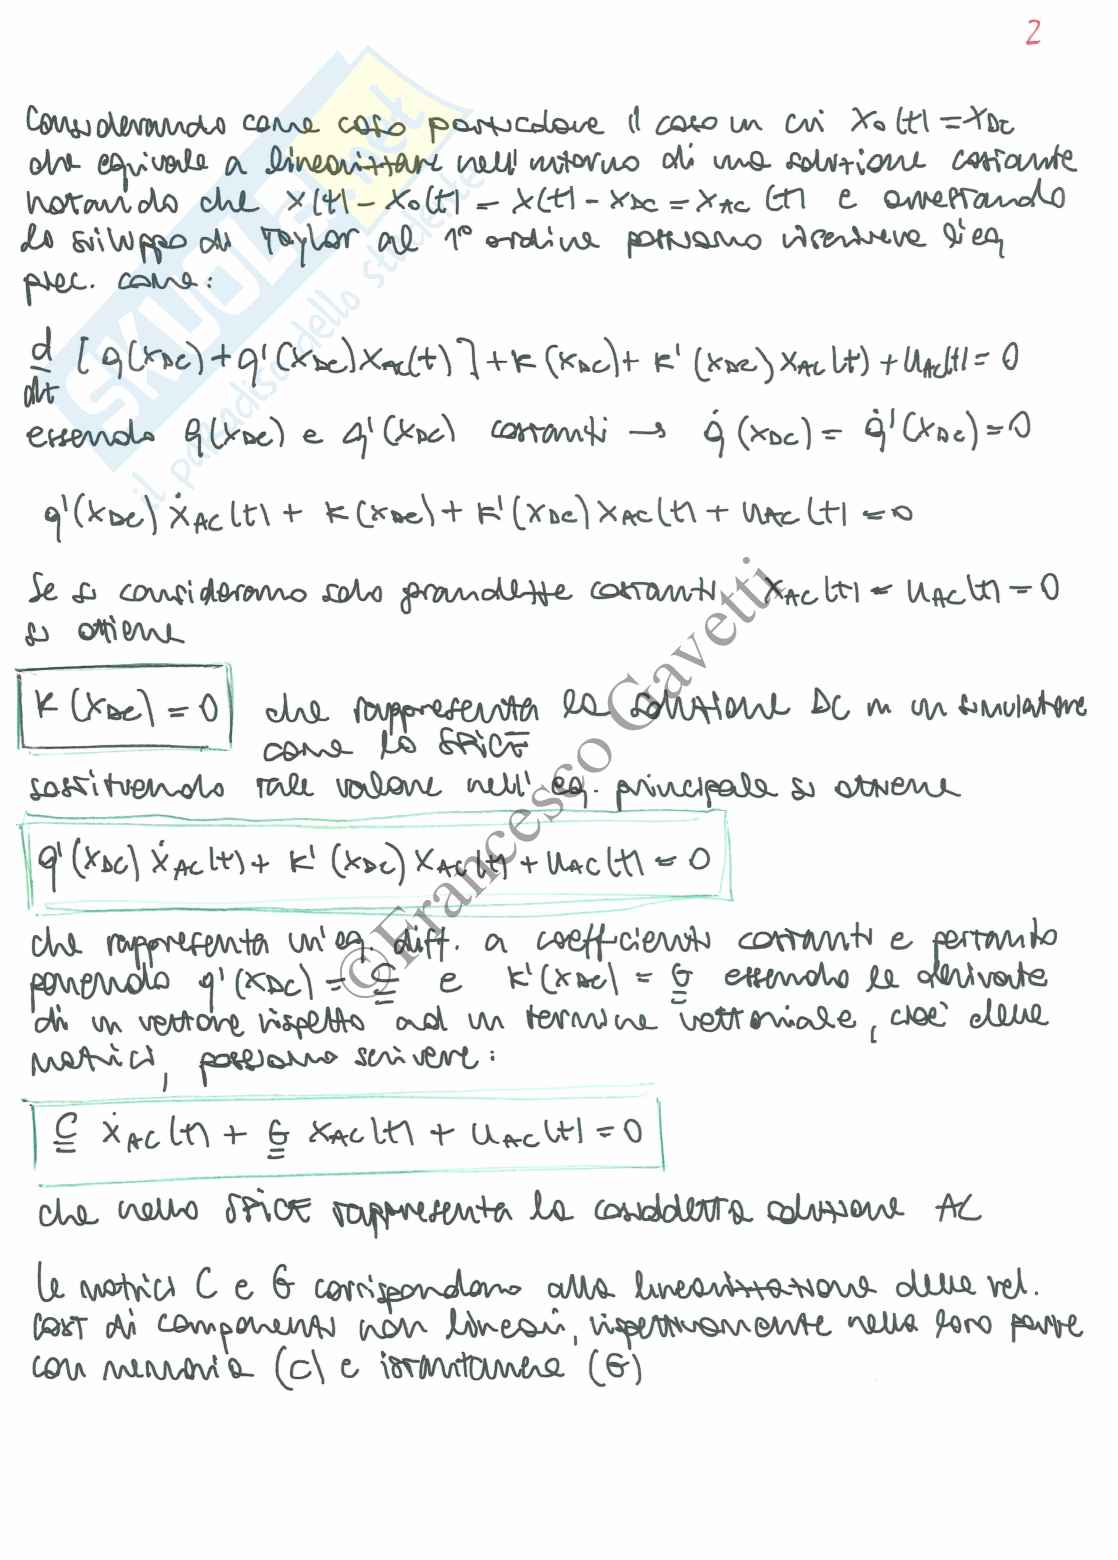 2
Considerando come caso particolare il caso in cui x₀(t) = x_DC
che equivale a linearizzare nell'intorno di una soluzione costante
notando che x(t) - x₀(t) = x(t) - x_DC = x_AC(t) e arrestando
lo sviluppo di Taylor al 1° ordine possiamo riscrivere l'eq
prec. come:
d/dt [q(x_DC) + q'(x_DC) x_AC(t)] + K(x_DC) + K'(x_DC) x_AC(t) + u_AC(t) = 0
essendo q(x_DC) e q'(x_DC) costanti → q̇(x_DC) = q̇'(x_DC) = 0
q'(x_DC) ẋ_AC(t) + K(x_DC) + K'(x_DC) x_AC(t) + u_AC(t) = 0
Se si considerano solo grandezze costanti x_AC(t) = u_AC(t) = 0
si ottiene
K(x_DC) = 0 che rappresenta la soluzione DC in un simulatore
come lo SPICE
sostituendo tale valore nell'eq. principale si ottiene
q'(x_DC) ẋ_AC(t) + K'(x_DC) x_AC(t) + u_AC(t) = 0
che rappresenta un'eq. diff. a coefficienti costanti e pertanto
ponendo q'(x_DC) = C e K'(x_DC) = G essendo le derivate
di un vettore rispetto ad un termine vettoriale, cioè delle
matrici, possiamo scrivere:
C ẋ_AC(t) + G x_AC(t) + u_AC(t) = 0
che nello SPICE rappresenta la cosiddetta soluzione AC
Le matrici C e G corrispondono alla linearizzazione delle rel.
cost di componenti non lineari, rispettivamente nella loro parte
con memoria (C) e istantanea (G)
SKUOLA.net
il paradiso dello studente
©Francesco Gavetti